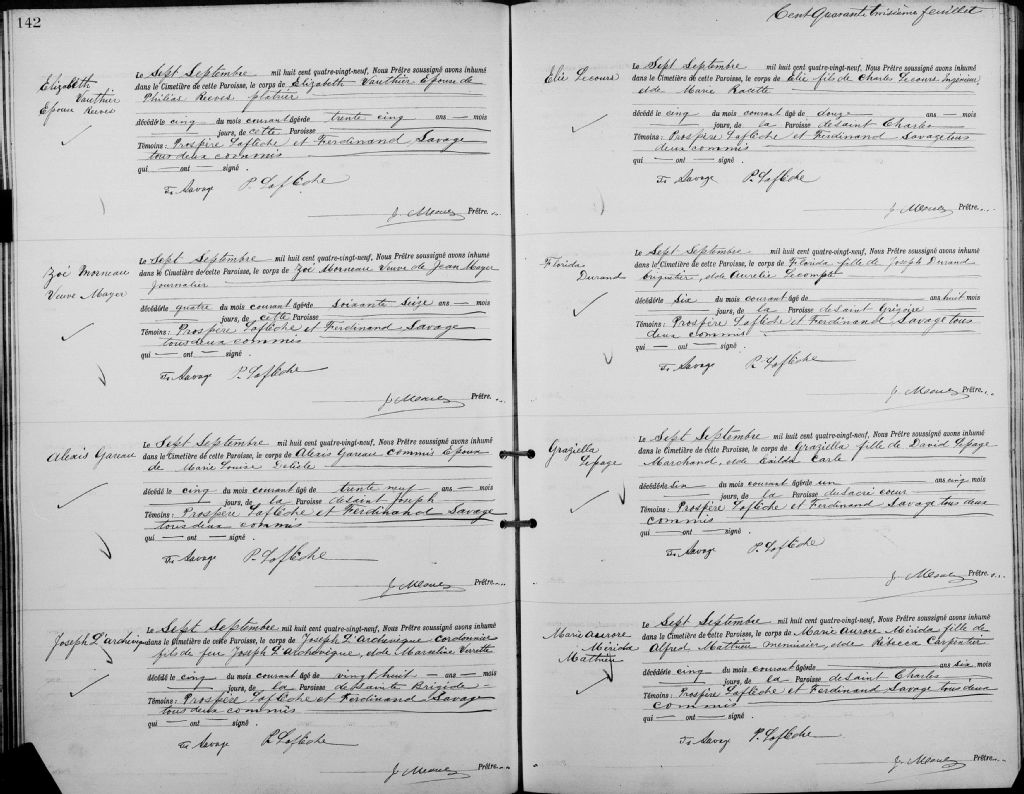 142
Elizabeth
Vauthier
Epouse Reeves
Le Sept Septembre mil huit cent quatre-vingt-neuf, Nous Prêtre soussigné avons inhumé
dans le Cimetière de cette Paroisse, le corps de Elizabeth Vauthier Epouse de
Philéas Reeves platrier
décédée le cinq du mois courant âgée de trente cinq ans — mois
— jours, de cette Paroisse
Témoins : Prospère Laflèche et Ferdinand Savage
tous deux commis
qui — ont — signé .
Fr Savage P. Laflèche
Prêtre.
Zoé Morneau
Veuve Mayer
Le Sept Septembre mil huit cent quatre-vingt-neuf, Nous Prêtre soussigné avons inhumé
dans le Cimetière de cette Paroisse, le corps de Zoé Morneau Veuve de Jean Mayer
Journalier
décédée le quatre du mois courant âgée de Soixante Seize ans — mois
— jours, de cette Paroisse
Témoins : Prospère Laflèche et Ferdinand Savage
tous deux commis
qui — ont — signé .
Fr Savage P. Laflèche
Prêtre.
Alexis Gareau
Le Sept Septembre mil huit cent quatre-vingt-neuf, Nous Prêtre soussigné avons inhumé
dans le Cimetière de cette Paroisse, le corps de Alexis Gareau commis Epoux
de Marie Louise Delisle
décédé le cinq du mois courant âgé de trente neuf ans — mois
— jours, de la Paroisse de Saint Joseph
Témoins : Prospère Laflèche et Ferdinand Savage
tous deux commis
qui — ont — signé .
Fr Savage P. Laflèche
Prêtre.
Joseph L'archevêque
Le Sept Septembre mil huit cent quatre-vingt-neuf, Nous Prêtre soussigné avons inhumé
dans le Cimetière de cette Paroisse, le corps de Joseph L'archevêque cordonnier
fils de feu Joseph L'archevêque, et de Marceline Verrette
décédé le cinq du mois courant âgé de vingt huit ans — mois
— jours, de la Paroisse de Sainte Brigide
Témoins : Prospère Laflèche et Ferdinand Savage
tous deux commis
qui — ont — signé .
Fr Savage P. Laflèche
Prêtre.
Cent Quarante troisième feuillet
Elie Lecours
Le Sept Septembre mil huit cent quatre-vingt-neuf, Nous Prêtre soussigné avons inhumé
dans le Cimetière de cette Paroisse, le corps de Elie fils de Charles Lecours Ingénieur,
et de Marie Racette
décédé le cinq du mois courant âgé de douze ans — mois
— jours, de la Paroisse de Saint Charles
Témoins : Prospère Laflèche et Ferdinand Savage tous
deux commis
qui — ont — signé .
Fr Savage P. Laflèche
Prêtre.
Florida
Durand
Le Sept Septembre mil huit cent quatre-vingt-neuf, Nous Prêtre soussigné avons inhumé
dans le Cimetière de cette Paroisse, le corps de Florida fille de Joseph Durand
briquetier, et de Aurélie Lecompte
décédée le Six du mois courant âgé de ans huit mois
— jours, de la Paroisse de Saint Grégoire
Témoins : Prospère Laflèche et Ferdinand Savage tous
deux commis
qui — ont — signé .
Fr Savage P. Laflèche
Prêtre.
Graziella
Lepage
Le Sept Septembre mil huit cent quatre-vingt-neuf, Nous Prêtre soussigné avons inhumé
dans le Cimetière de cette Paroisse, le corps de Graziella fille de David Lepage
Marchand, et de Exilda Carle
décédée le six du mois courant âgé de un ans cinq mois
— jours, de la Paroisse du Sacré coeur
Témoins : Prospère Laflèche et Ferdinand Savage tous deux
commis
qui — ont — signé .
Fr Savage P. Laflèche
Prêtre.
Marie Aurore
Mérida
Mathieu
Le Sept Septembre mil huit cent quatre-vingt-neuf, Nous Prêtre soussigné avons inhumé
dans le Cimetière de cette Paroisse, le corps de Marie Aurore Mérida fille de
Alfred Matthieu menuisier, et de Rébecca Carpentier
décédée le cinq du mois courant âgé de ans six mois
— jours, de la Paroisse de Saint Charles
Témoins : Prospère Laflèche et Ferdinand Savage tous deux
commis
qui — ont — signé .
Fr Savage P. Laflèche
Prêtre.